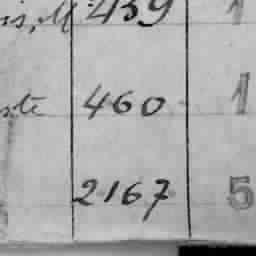 is, M 439 1
ste 460 1
2167 5